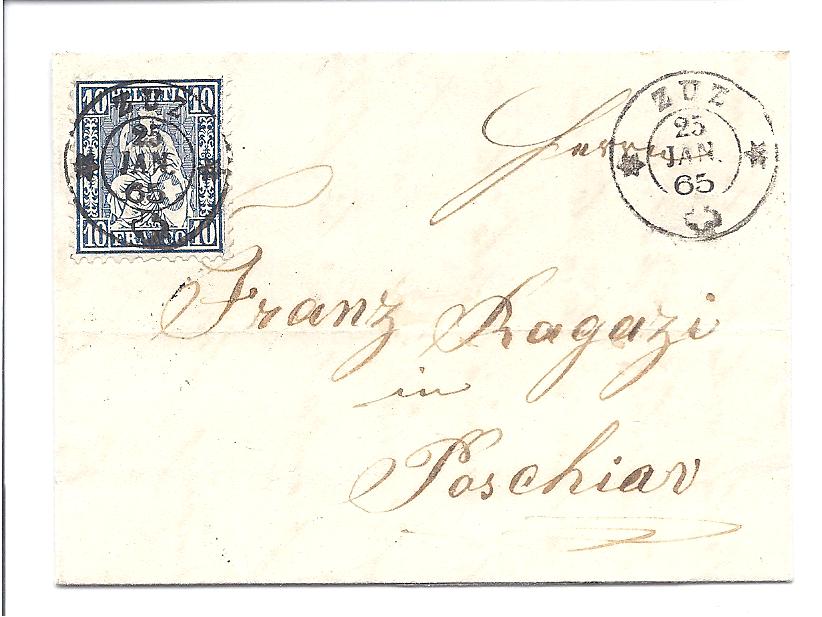 10 HELVETIA 10
10 FRANCO 10
ZUZ
25
JAN.
65
ZUZ
25
JAN.
65
Herrn
Franz Ragazi
in
Poschiav